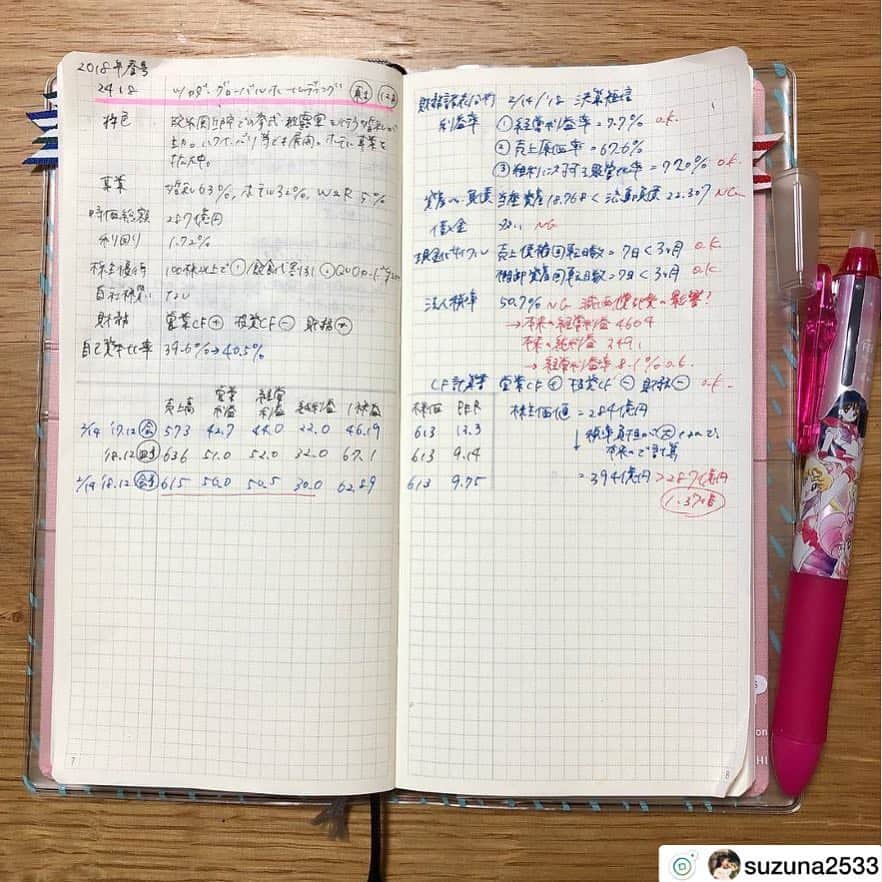 2018年春号
2418 ツカダ・グローバルホールディング 東1 12月
特色
事業 婚礼63%, ホテル32%, W&R 5%
時価総額 287億円
利回り 1.72%
株主優待 100株以上で
自社株買い なし
財務 営業CF⊕ 投資CF⊖ 財務
自己資本比率 39.6%→40.5%
売上高 営業利益 経常利益 純利益 1株益
2/14 '17.12 会 573 42.7 44.0 22.0 46.19
'18.12 四 636 51.0 52.0 32.0 67.1
2/14 '18.12 会 615 50.0 50.5 30.0 62.89
7
財務諸表分析 2/14/18 決算短信
利益率 ①経常利益率=7.7% o.k.
②売上原価率=67.6%
③粗利に対する販管比率=92.0% o.k.
資産vs.負債 当座資産18.968<流動負債22.307 NG
借金 多い NG
現金化サイクル 売上債権回転日数=7日<3ヶ月 o.k.
棚卸資産回転日数=7日<3ヶ月 o.k.
法人税率 50.7% NG 減価償却費の影響?
→本来の経常利益 4604
本来の純利益
→経常利益率 8.1% o.k.
CF計算書 営業CF⊕ 投資CF⊖ 財務⊖ o.k.
株価 PER 株主価値=284億円
613 13.3
613 9.14 本来ので計算
613 9.75 =394億円>287億円
1.37倍
8
suzuna2533